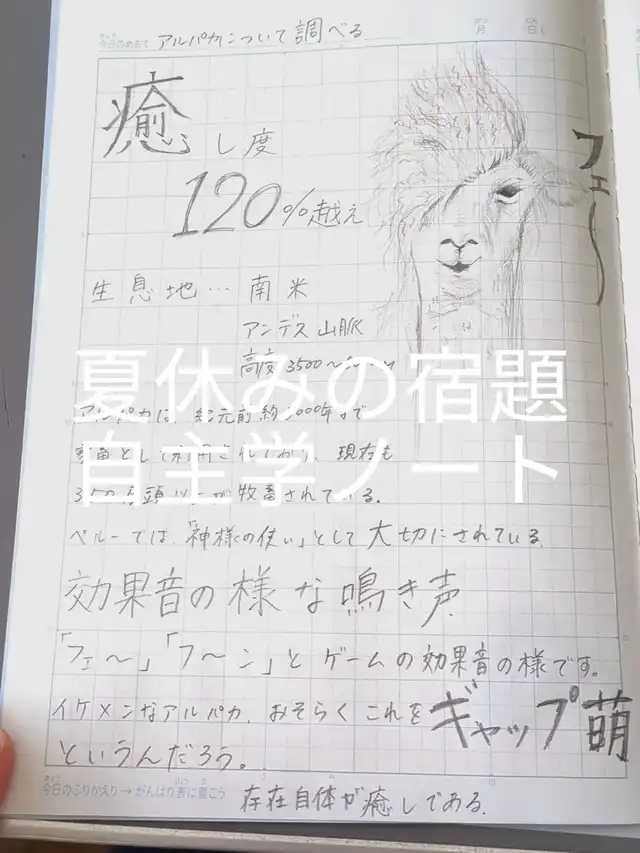 今日のめあて アルパカについて調べる
月 日(
癒し度
120%越え
フェ〜
生息地…南米
アンデス山脈
高度3500〜
夏休みの宿題
アルパカは、紀元前約 000年まで
自主学ノート
家畜として利用されて 現在も
が牧畜されている。
ペルーでは「神様の使い」として大切にされている。
効果音の様な鳴き声
「フェ〜」「フ〜ン」とゲームの効果音の様です。
イケメンなアルパカ、おそらくこれをギャップ萌
というんだろう。
今日のふりかえり→がんばり表に書こう 存在自体が癒しである。